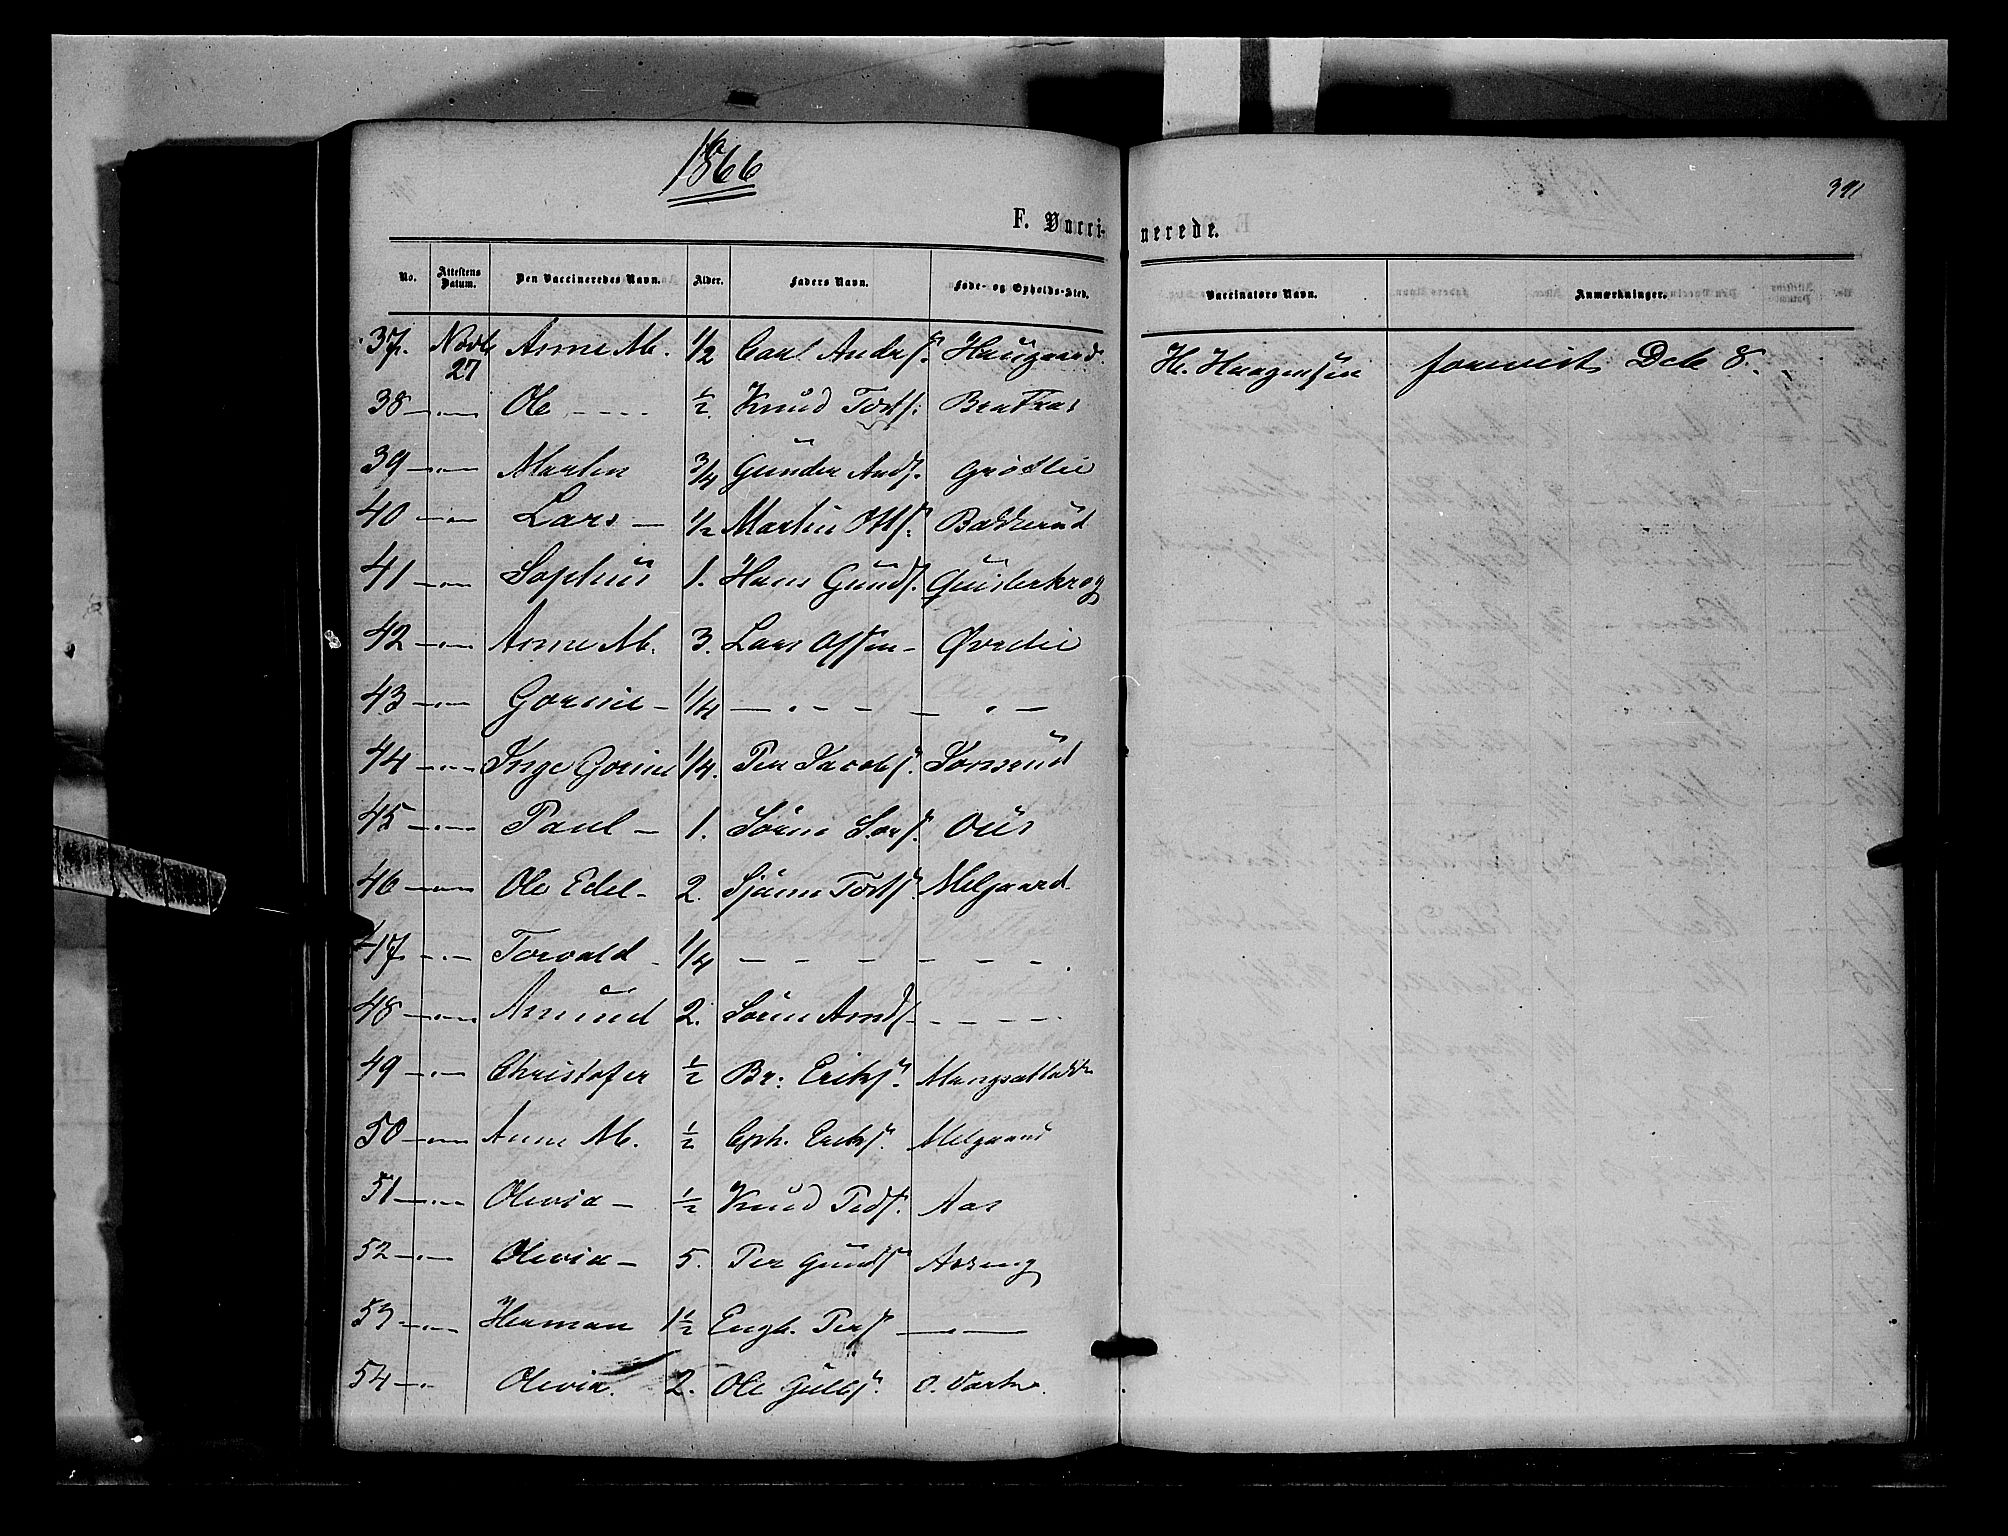 1866
391
F. Vacci-
nerede.
No. Attestens Datum. Den Vaccineredes Navn. Alder. Faders Navn. Føde- og Opholds-Sted. Vaccinators Navn. Anmærkninger.
37. Novb 27 Anne M. 1/2 Carl Andrs: Haugaard. H. Haagensen foreviist Deb 8.
38 —"— Ole ---- 1/2. Knud Torts:
39 —"— Marten 3/4 Gunder Ands. Grôtlie
40 —"— Lars — 1/2 Martin Otts: Bakkerud
41 —"— Sophus 1. Hans Gunds. Guislerkrog
42 —"— Anne M. 3. Lars Olssen - Øvrelie
43 —"— Gorine - 1/4 — . — — — . —
44 —"— Inge Gorine 1/4. Per Jacobs.
45 —"— Paul — 1. Søren Lars. Ous
46 —"— Ole Edel- 2. Melgaard
47 —"— Torvald - 1/4 — — — — — — .
48 —"— Amund 2. Søren Amds - - - -
49 —"— Christofer 1/2 Br: Eriks.
50 —"— Anne M. 1/2 Cph. Eriks. Melgaard
51 —"— Olevia — 1/2 Knud Peds. Aas
52 —"— Olevia — 5. Per Gunds. Aaseng
53 —"— Herman 1 1/2 Engb. Pers —"—
54 —"— Olevia. 2. Ole Gulbs.